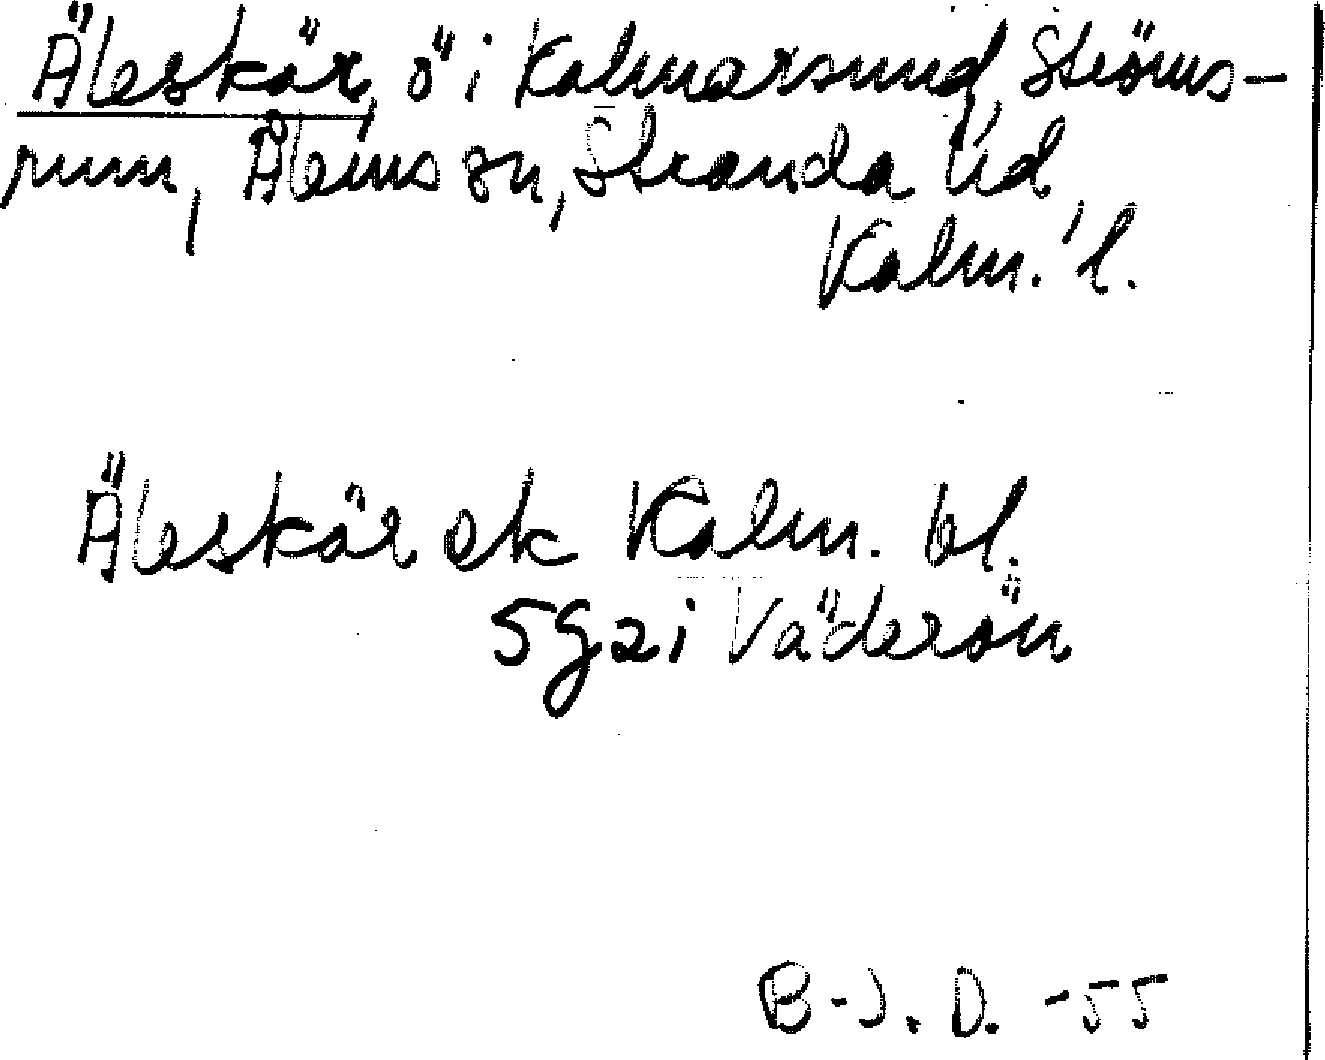 Äleskär, ö i Kalmarsund, Ströms-
rum, Ålems sn, Stranda hd,
Kalm. l.
Äleskär ek Kalm. bl.
5g2i Väderön
B-J. D. -55